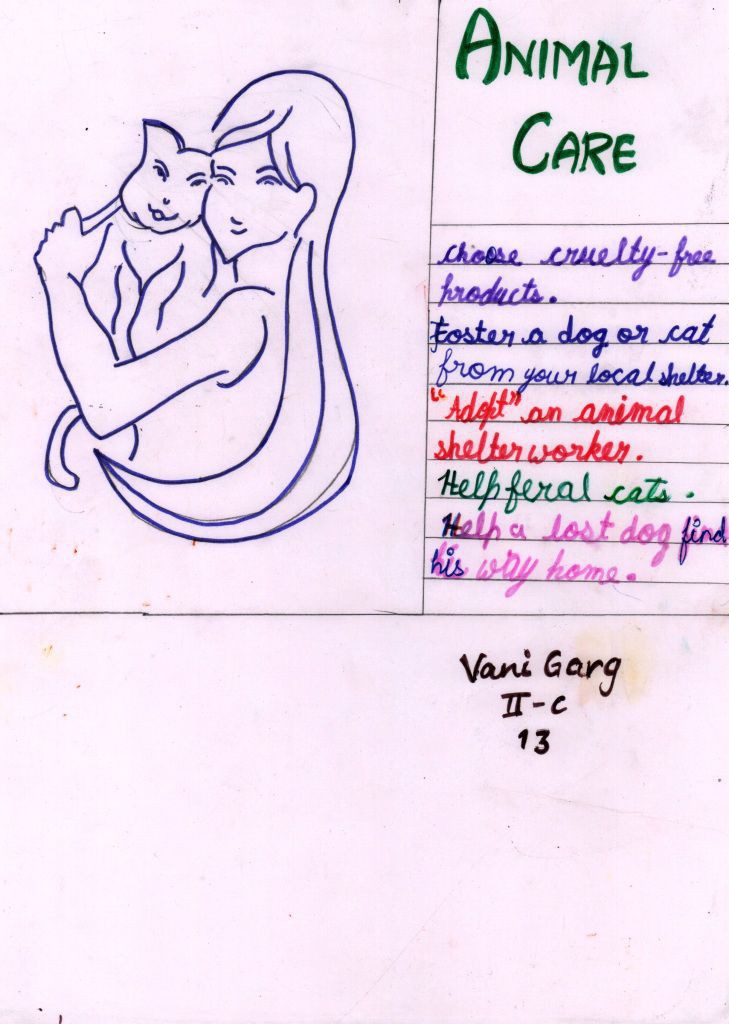 ANIMAL
CARE
choose cruelty-free
products.
Foster a dog or cat
from your local shelter.
"Adopt" an animal
shelter worker.
Help feral cats.
Help a lost dog find
his way home.
Vani Garg
II-C
13